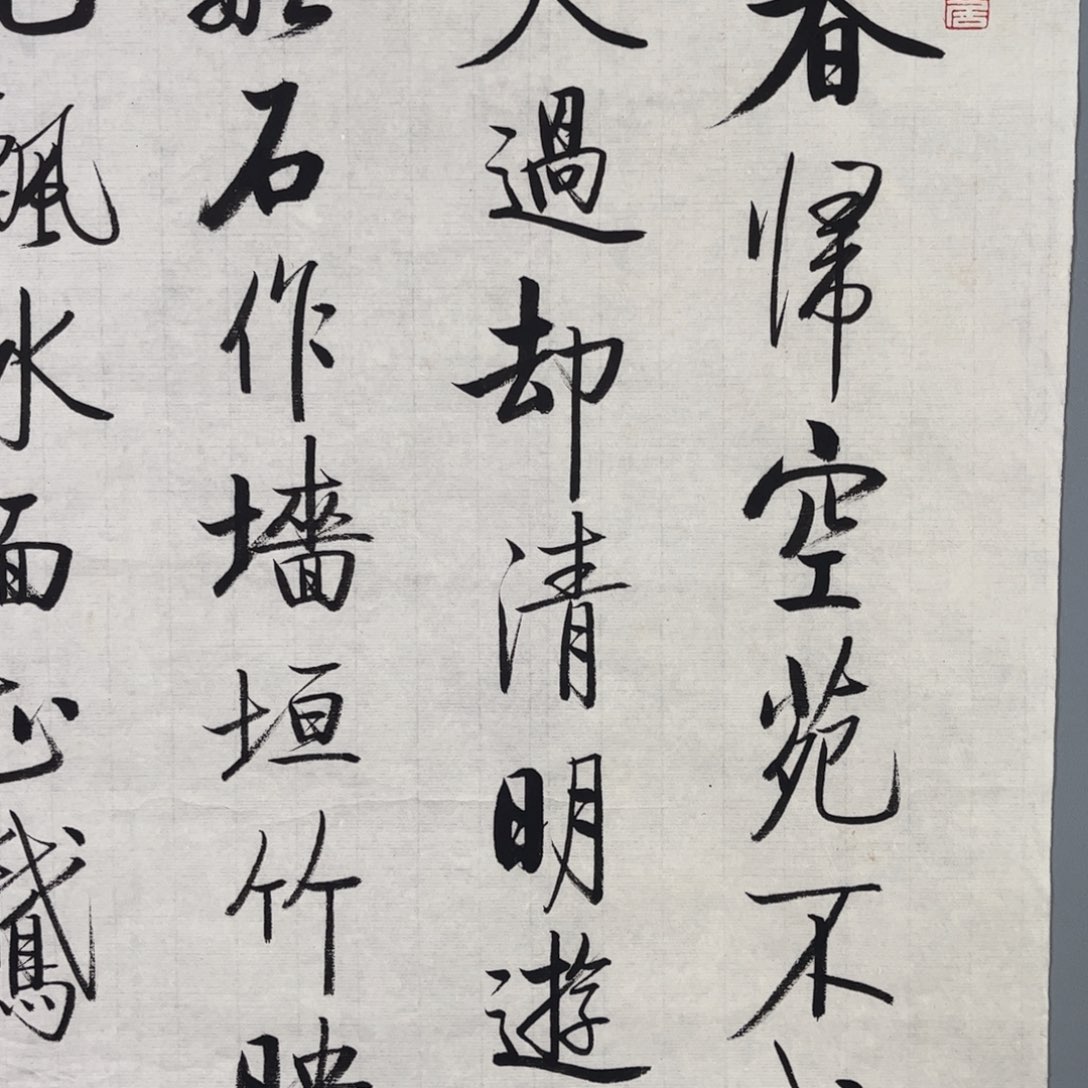 春歸空苑不
人過却清明遊
石作墻垣竹映
水面